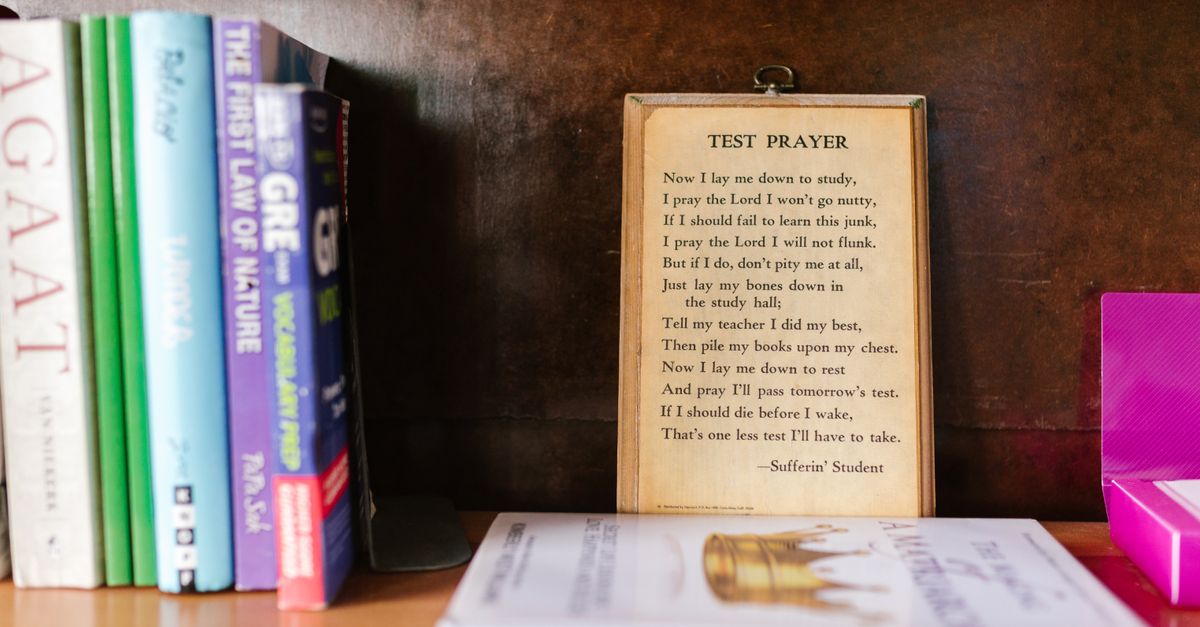 AGAAT
VAN NIEKERK
THE FIRST LAW OF NATURE
PaPa Suk
GRE
VOCABULARY PREP
TEST PRAYER
Now I lay me down to study,
I pray the Lord I won't go nutty,
If I should fail to learn this junk,
I pray the Lord I will not flunk.
But if I do, don't pity me at all,
Just lay my bones down in
the study hall;
Tell my teacher I did my best,
Then pile my books upon my chest.
Now I lay me down to rest
And pray I'll pass tomorrow's test.
If I should die before I wake,
That's one less test I'll have to take.
—Sufferin' Student
THE MAKING
OF
A MATRIARCH